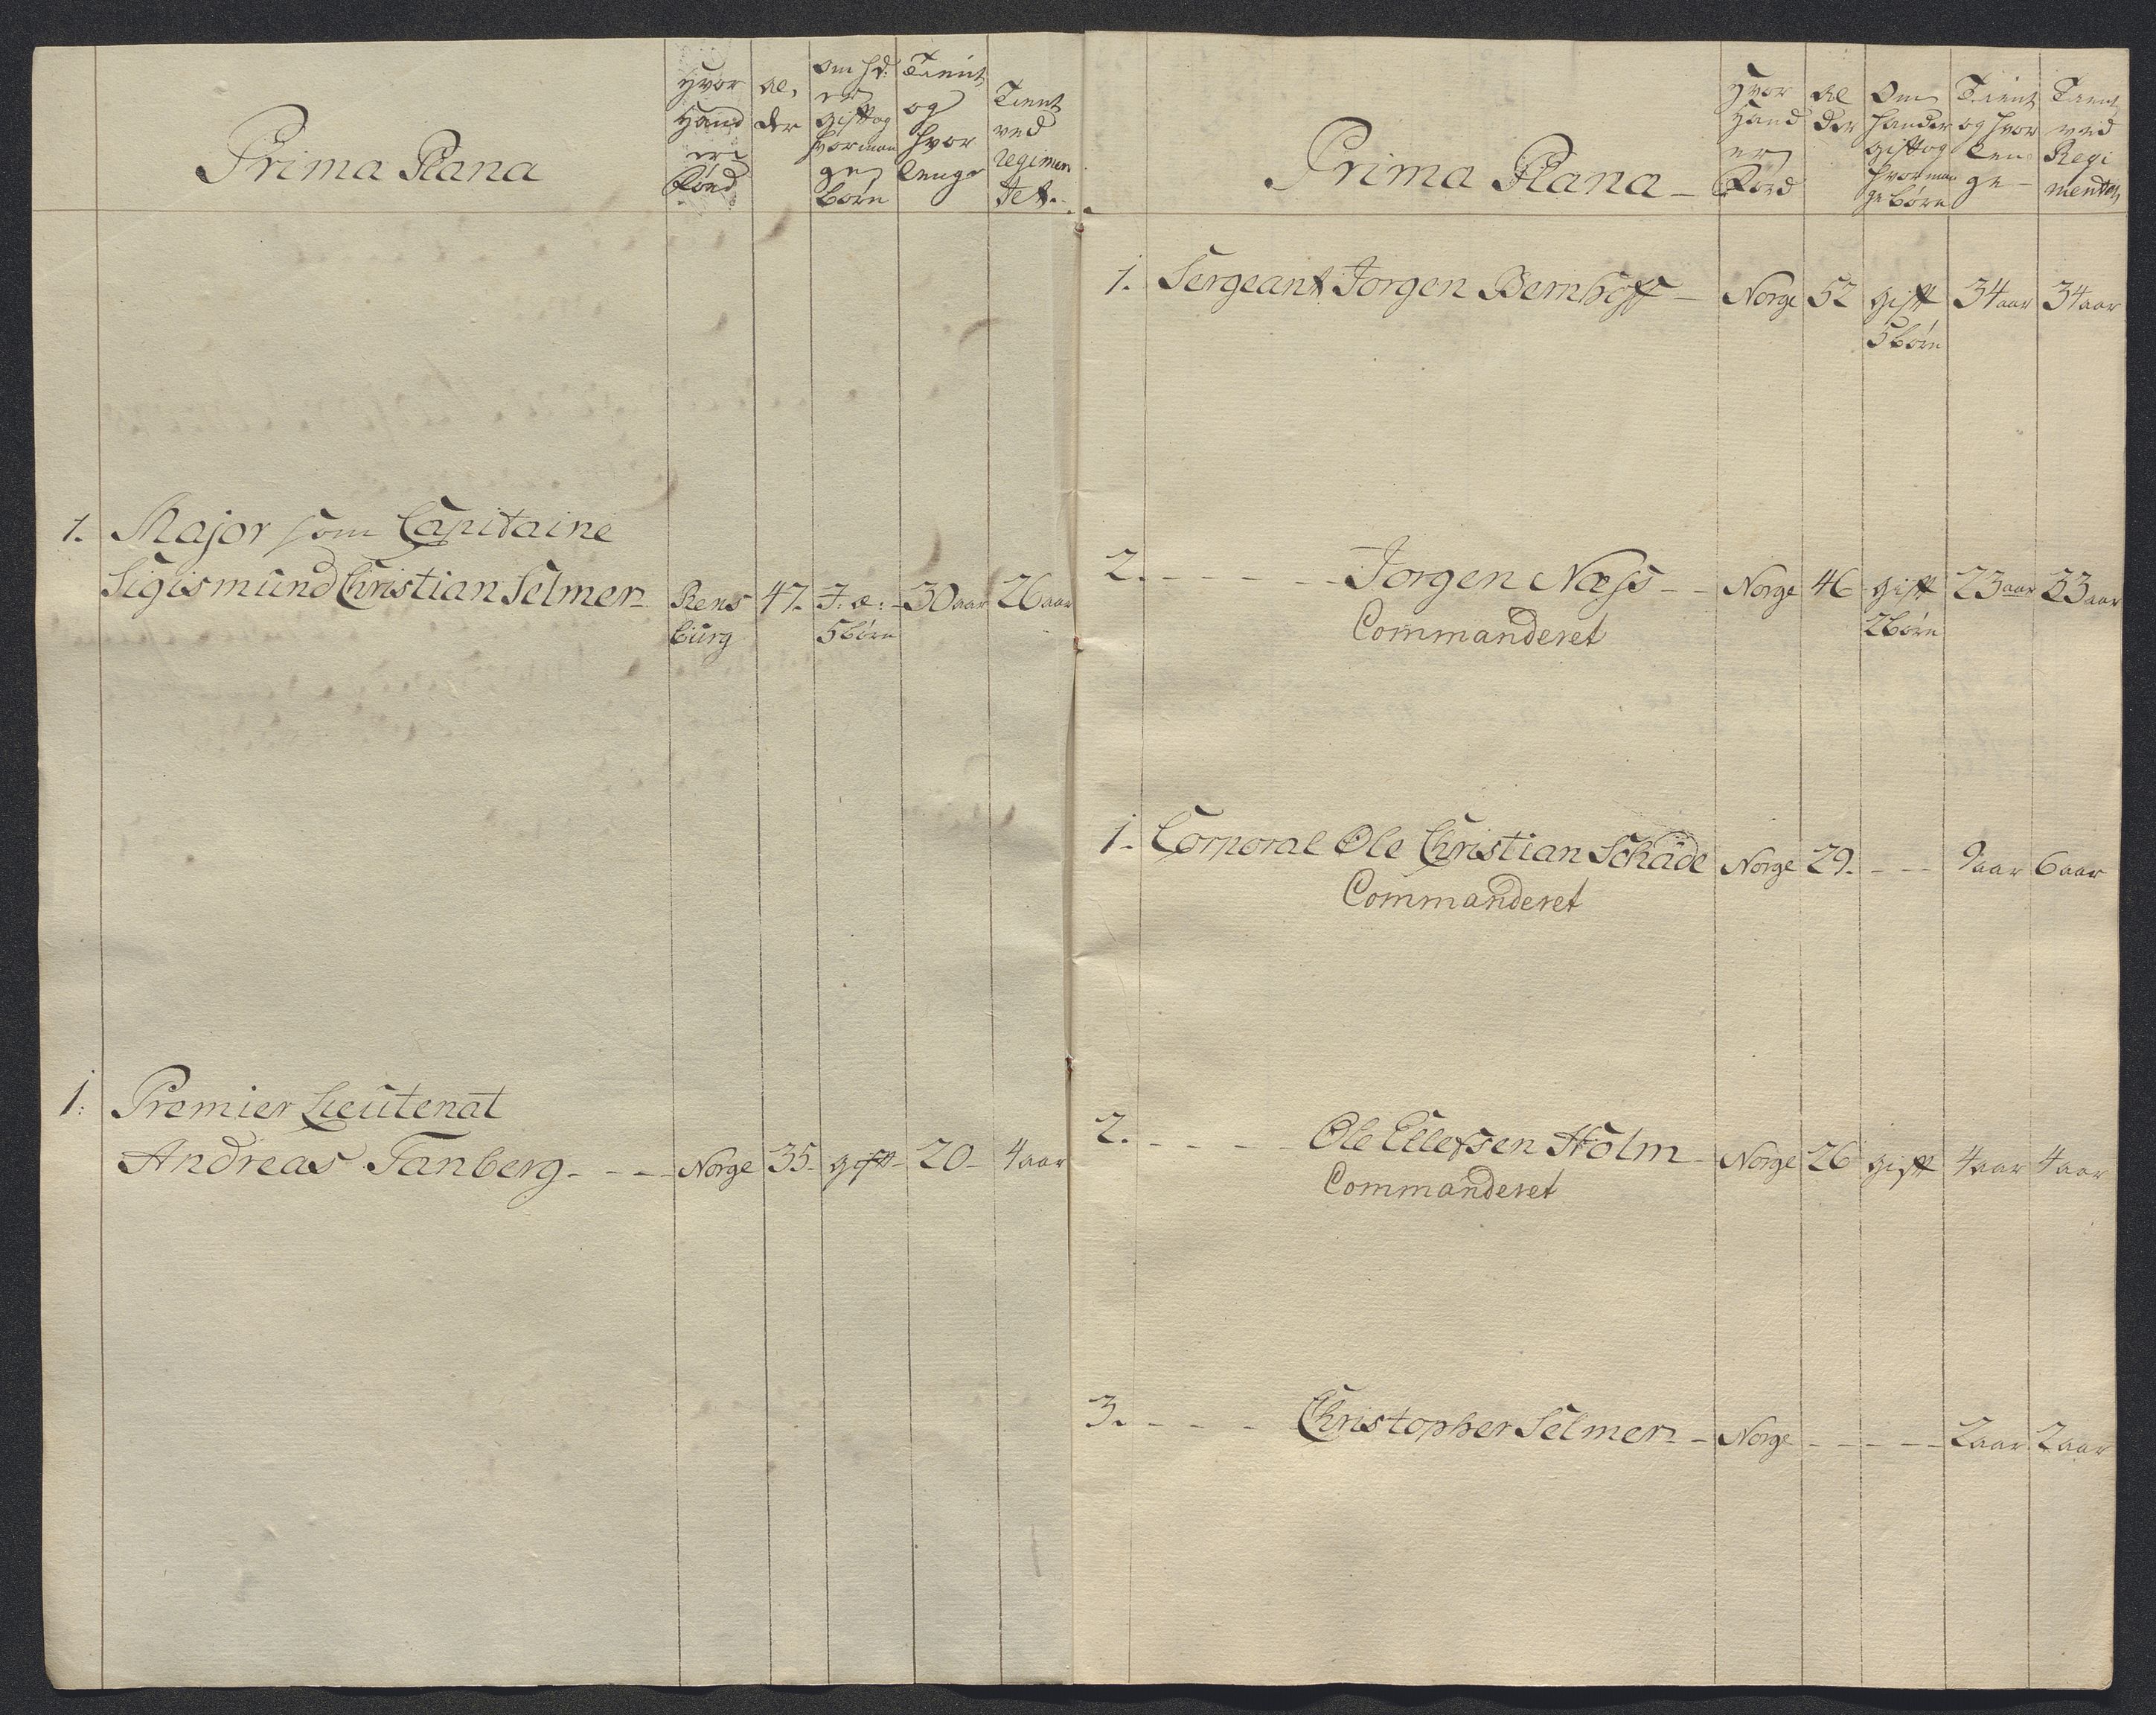 Prima Plana
Hvor Hand er fød
Al, der
Om hd: er gift og hvor mange børn
Tient og hvor lenge
Tient ved regimen tet.
1. Major som Capitaine
Sigismund Christian Selmer Rens burg 47. J: æ: 5 børn 30 aar 26 aar
1: Premier Lieutenat
Andreas Tanberg - - - Norge 35 gift 20 4 aar
Prima Plana
Hvor Hand er Fød
Al der
Om hand er gift og hvor mange børn
Tient og hvor lenge
Tient ved Regimentet
1. Sergeant Jorgen Bernhoff Norge 52 gift 34 aar 34 aar
5 børn
2. - - - - - Jorgen Næss - - Norge 46 gift 23 aar 23 aar
Commanderet 2 børn
1. Corporal Ole Christian Schäde Norge 29. - - 9 aar 6 aar
Commanderet
2. - - - - Ole Ellefsen Holm Norge 26 gift 4 aar 4 aar
Commanderet
3. - - - - Christopher Selmer - Norge - - - - 2 aar 2 aar